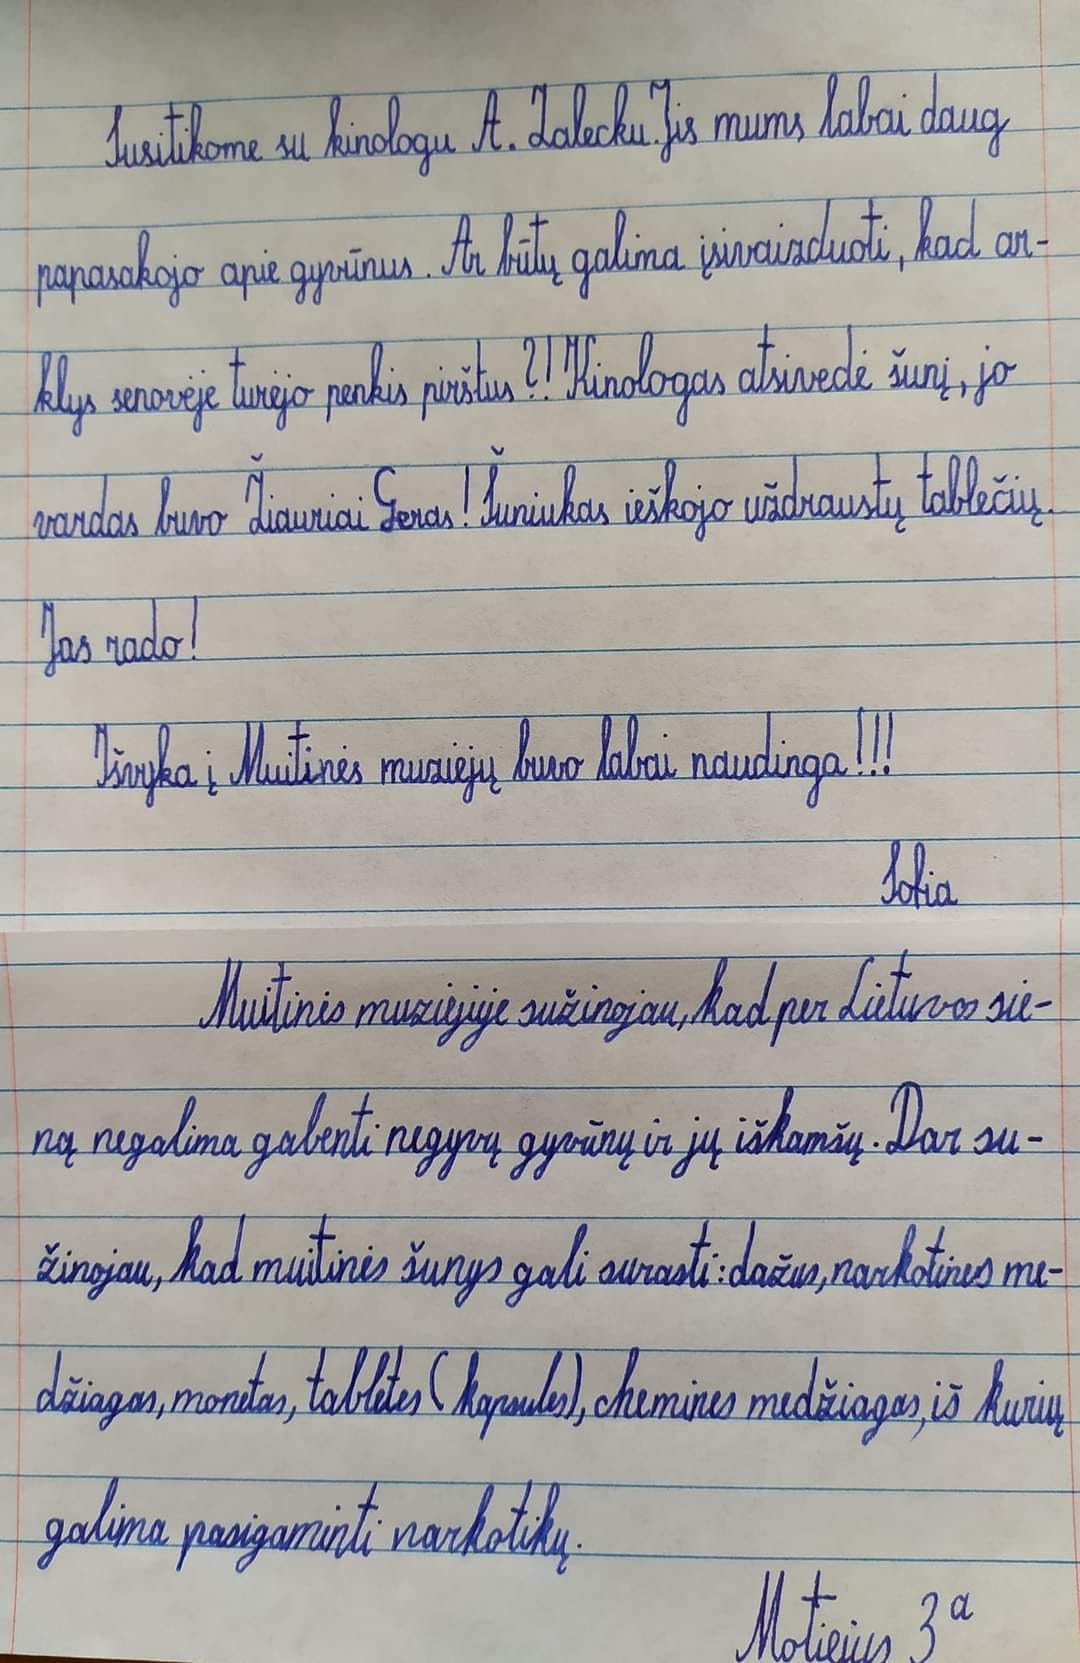 Susitikome su kinologu A. Zalecku. Jis mums labai daug
papasakojo apie gyvūnus. Ar būtų galima įsivaizduoti, kad ar-
klys senovėje turėjo penkis pirštus?! Kinologas atsivedė šunį, jo
vardas buvo Žiauriai Geras! Šuniukas ieškojo uždraustų tablečių.
Jas rado!
Išvyka į Muitinės muziejų buvo labai naudinga!!!
Sofia
Muitinės muziejuje sužinojau, kad per Lietuvos sie-
ną negalima gabenti negyvų gyvūnų ir jų iškamšų. Dar su-
žinojau, kad muitinės šunys gali surasti: dažus, narkotines me-
džiagas, monetas, tabletes (kapsules), chemines medžiagas, iš kurių
galima pasigaminti narkotikų.
Motiejus 3a